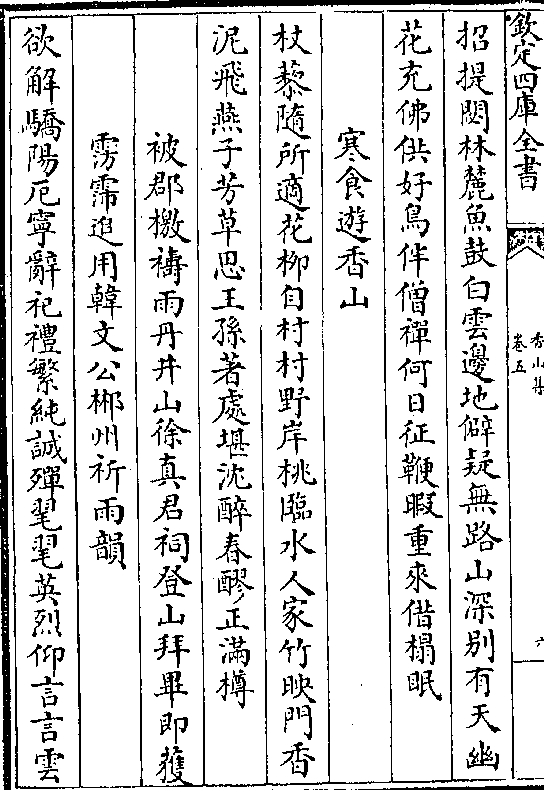 欽定四庫全書
香山集
卷五
六
招提閟林麓魚鼓白雲邊地僻疑無路山深别有天幽
花充佛供好鳥伴僧禪何日征鞭暇重來借榻眠
寒食遊香山
杖藜隨所適花柳自村村野岸桃臨水人家竹映門香
泥飛燕子芳草思王孫著處堪沈醉春醪正滿樽
被郡檄禱雨丹井山徐真君祠登山拜畢即獲
雱霈追用韓文公郴州祈雨韻
欲解驕陽厄寧辭祀禮繁純誠殫毣毣英烈仰言言雲